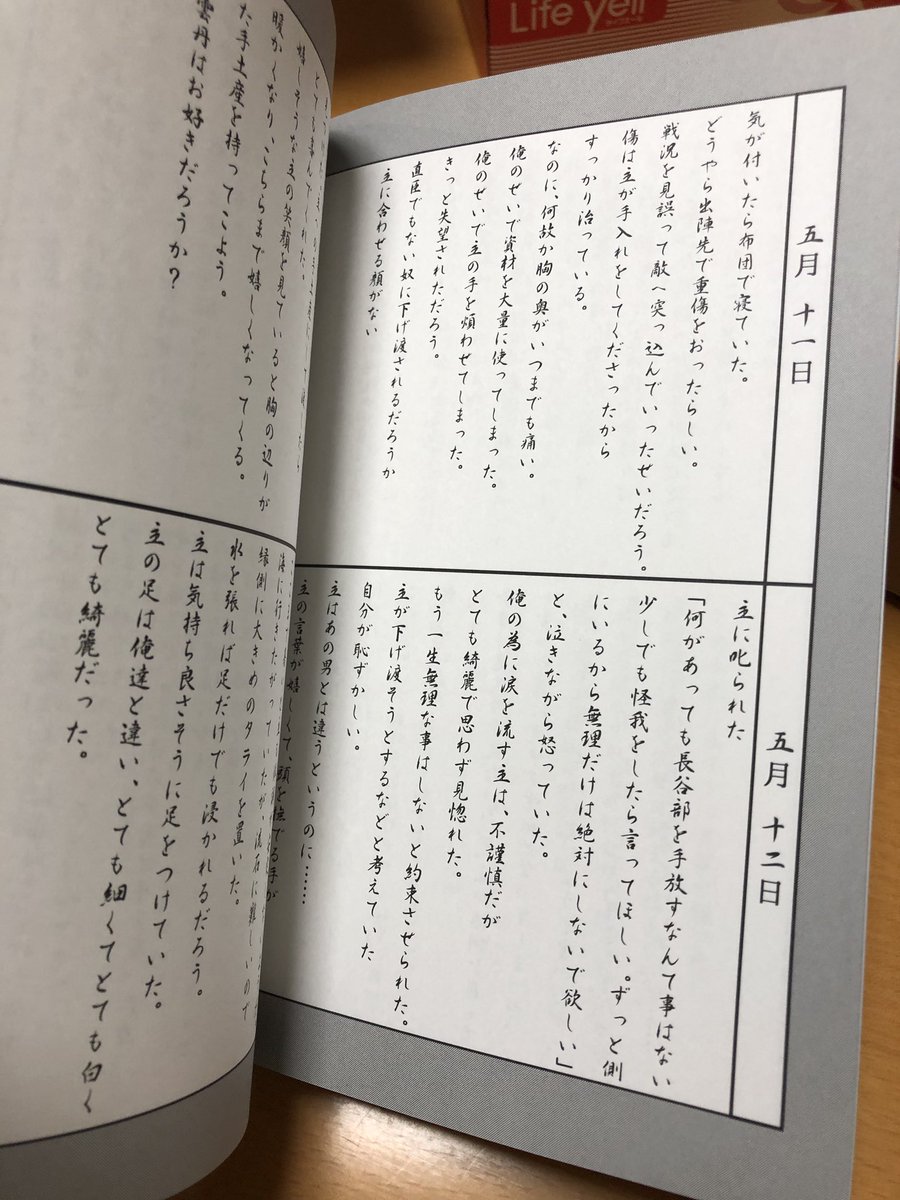 Life yell
五月 十一日
気が付いたら布団で寝ていた。
どうやら出陣先で重傷をおったらしい。
戦況を見誤って敵へ突っ込んでいったせいだろう。
傷は主が手入れをしてくださったから
すっかり治っている。
なのに、何故か胸の奥がいつまでも痛い。
俺のせいで資材を大量に使ってしまった。
俺のせいで主の手を煩わせてしまった。
きっと失望されただろう。
直臣でもない奴に下げ渡されるだろうか
主に合わせる顔がない
五月 十二日
主に叱られた
「何があっても長谷部を手放すなんて事はない
少しでも怪我をしたら言ってほしい。ずっと側
にいるから無理だけは絶対にしないで欲しい」
と、泣きながら怒っていた。
俺の為に涙を流す主は、不謹慎だが
とても綺麗で思わず見惚れた。
もう一生無理な事はしないと約束させられた。
主が下げ渡そうとするなどと考えていた
自分が恥ずかしい。
主はあの男とは違うというのに……
主の言葉が嬉しくて、頭を撫でる手が
とても喜んでくれた。
嬉しそうな主の笑顔を見ていると胸の辺りが
暖かくなり、こちらまで嬉しくなってくる。
た手土産を持ってこよう。
雲丹はお好きだろうか?
海に行きたがっていたが、流石に難しいので
縁側に大きめのタライを置いた。
水を張れば足だけでも浸かれるだろう。
主は気持ち良さそうに足をつけていた。
主の足は俺達と違い、とても細くてとても白く
とても綺麗だった。